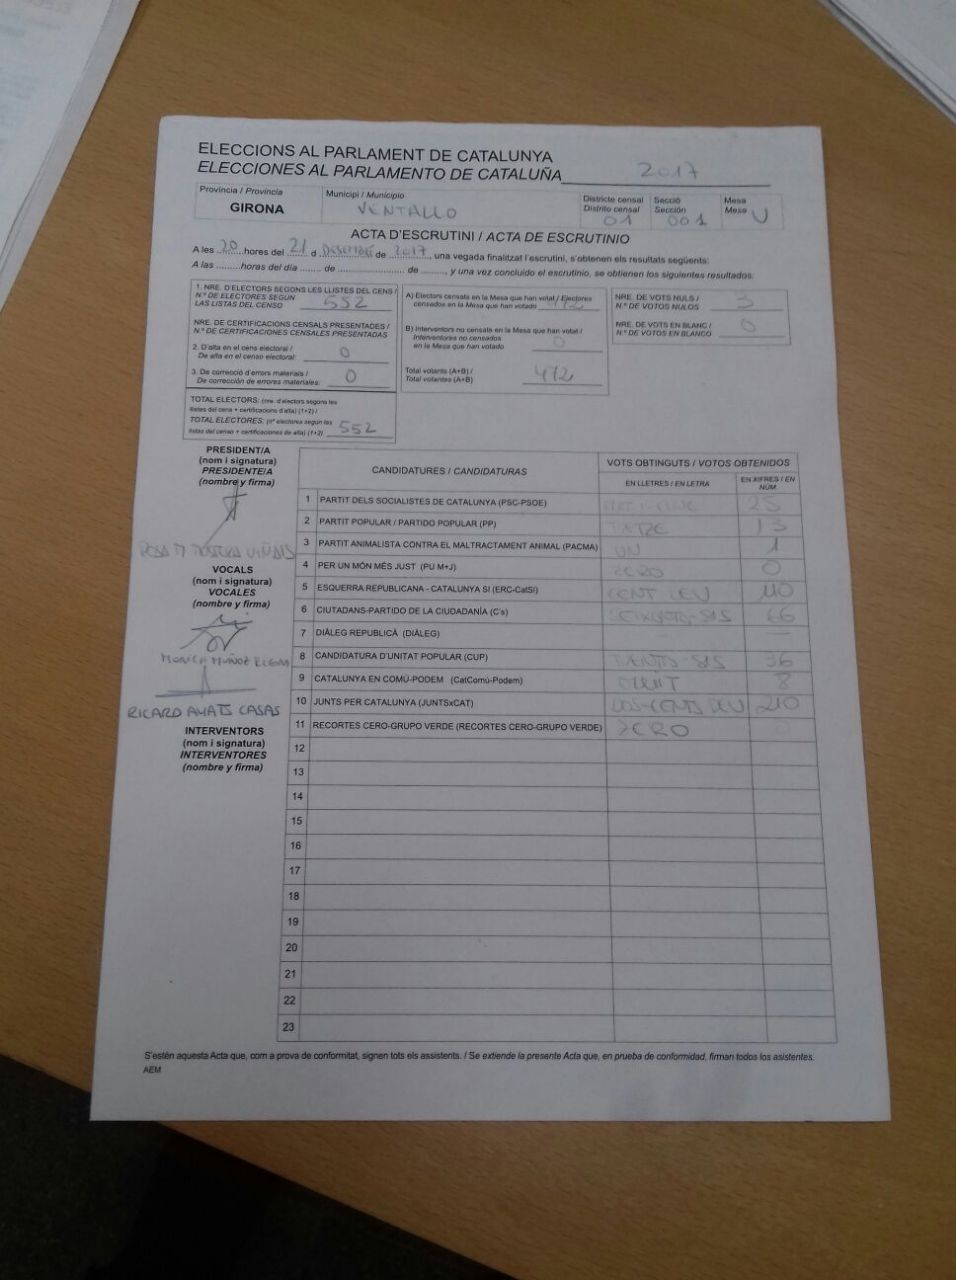 ELECCIONS AL PARLAMENT DE CATALUNYA
ELECCIONES AL PARLAMENTO DE CATALUÑA 2017
Província / Provincia
GIRONA
Municipi / Municipio
VENTALLO
Districte censal
Distrito censal
01
Secció
Sección
001
Mesa
Mesa U
ACTA D'ESCRUTINI / ACTA DE ESCRUTINIO
A les 20 hores del 21 d DESEMBRE de 2017, una vegada finalitzat l'escrutini, s'obtenen els resultats següents:
A las ......... horas del día ....... de ...................... de ........, y una vez concluido el escrutinio, se obtienen los siguientes resultados:
1. NRE. D'ELECTORS SEGONS LES LLISTES DEL CENS /
N.º DE ELECTORES SEGÚN
LAS LISTAS DEL CENSO 552
NRE. DE CERTIFICACIONS CENSALS PRESENTADES /
N.º DE CERTIFICACIONES CENSALES PRESENTADAS
2. D'alta en el cens electoral /
De alta en el censo electoral: 0
3. De correcció d'errors materials /
De corrección de errores materiales: 0
TOTAL ELECTORS: (nre. d'electors segons les
llistes del cens + certificacions d'alta) (1+2) /
TOTAL ELECTORES: (nº electores según las
listas del censo + certificaciones de alta) (1+2) 552
A) Electors censats en la Mesa que han votat / Electores
censados en la Mesa que han votado 472
B) Interventors no censats en la Mesa que han votat /
Interventores no censados
en la Mesa que han votado 0
Total votants (A+B) /
Total votantes (A+B) 472
NRE. DE VOTS NULS /
N.º DE VOTOS NULOS 3
NRE. DE VOTS EN BLANC /
N.º DE VOTOS EN BLANCO 0
PRESIDENT/A
(nom i signatura)
PRESIDENTE/A
(nombre y firma)
ROSA M VIÑALS
VOCALS
(nom i signatura)
VOCALES
(nombre y firma)
MONICA MUÑOZ
RICARD AYATS CASAS
INTERVENTORS
(nom i signatura)
INTERVENTORES
(nombre y firma)
CANDIDATURES / CANDIDATURAS
VOTS OBTINGUTS / VOTOS OBTENIDOS
EN LLETRES / EN LETRA
EN XIFRES / EN NÚM.
1 PARTIT DELS SOCIALISTES DE CATALUNYA (PSC-PSOE) 25
2 PARTIT POPULAR / PARTIDO POPULAR (PP) TRETZE 13
3 PARTIT ANIMALISTA CONTRA EL MALTRACTAMENT ANIMAL (PACMA) UN 1
4 PER UN MÓN MÉS JUST (PU M+J) ZERO 0
5 ESQUERRA REPUBLICANA - CATALUNYA SÍ (ERC-CatSí) CENT DEU 110
6 CIUTADANS-PARTIDO DE LA CIUDADANÍA (C's) SEIXANTA-SIS 66
7 DIÀLEG REPUBLICÀ (DIÀLEG) —
8 CANDIDATURA D'UNITAT POPULAR (CUP) TRENTA-SIS 36
9 CATALUNYA EN COMÚ-PODEM (CatComú-Podem) VUIT 8
10 JUNTS PER CATALUNYA (JUNTSxCAT) DOS-CENTS DEU 210
11 RECORTES CERO-GRUPO VERDE (RECORTES CERO-GRUPO VERDE) ZERO
12
13
14
15
16
17
18
19
20
21
22
23
S'estén aquesta Acta que, com a prova de conformitat, signen tots els assistents. / Se extiende la presente Acta que, en prueba de conformidad, firman todos los asistentes.
AEM